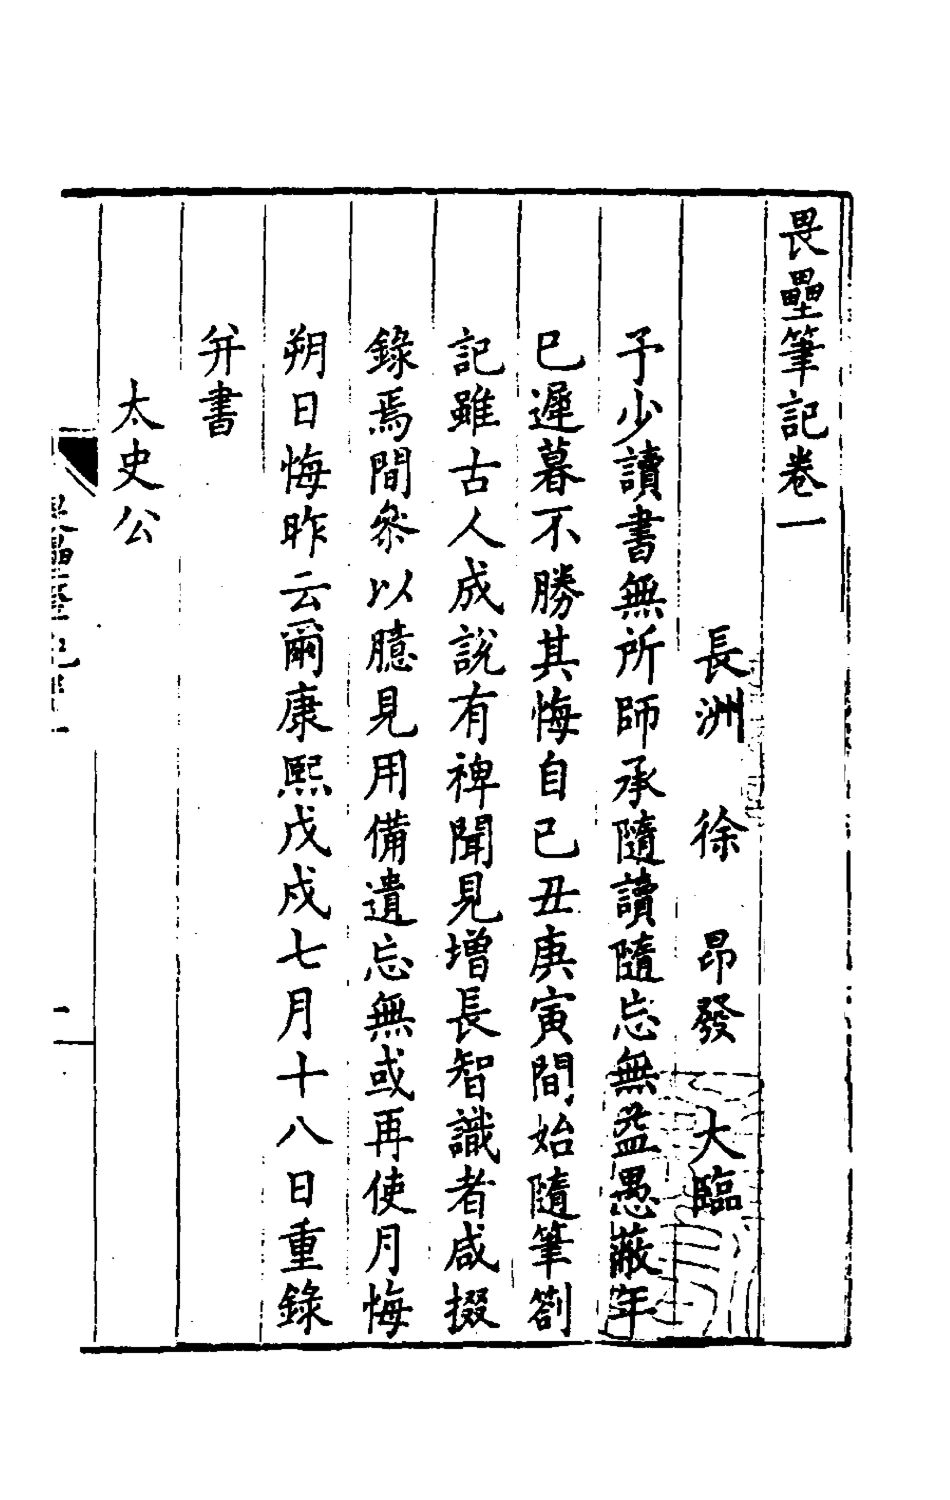 畏壘筆記卷一
長洲 徐 昂發 大臨
予少讀書無所師承隨讀隨忘無益愚蔽年
已遲暮不勝其悔自已丑庚寅間始隨筆劄
記雖古人成說有裨聞見增長智識者咸掇
錄焉間叅以臆見用備遺忘無或再使月悔
朔日悔昨云爾康熙戊戌七月十八日重錄
并書
太史公